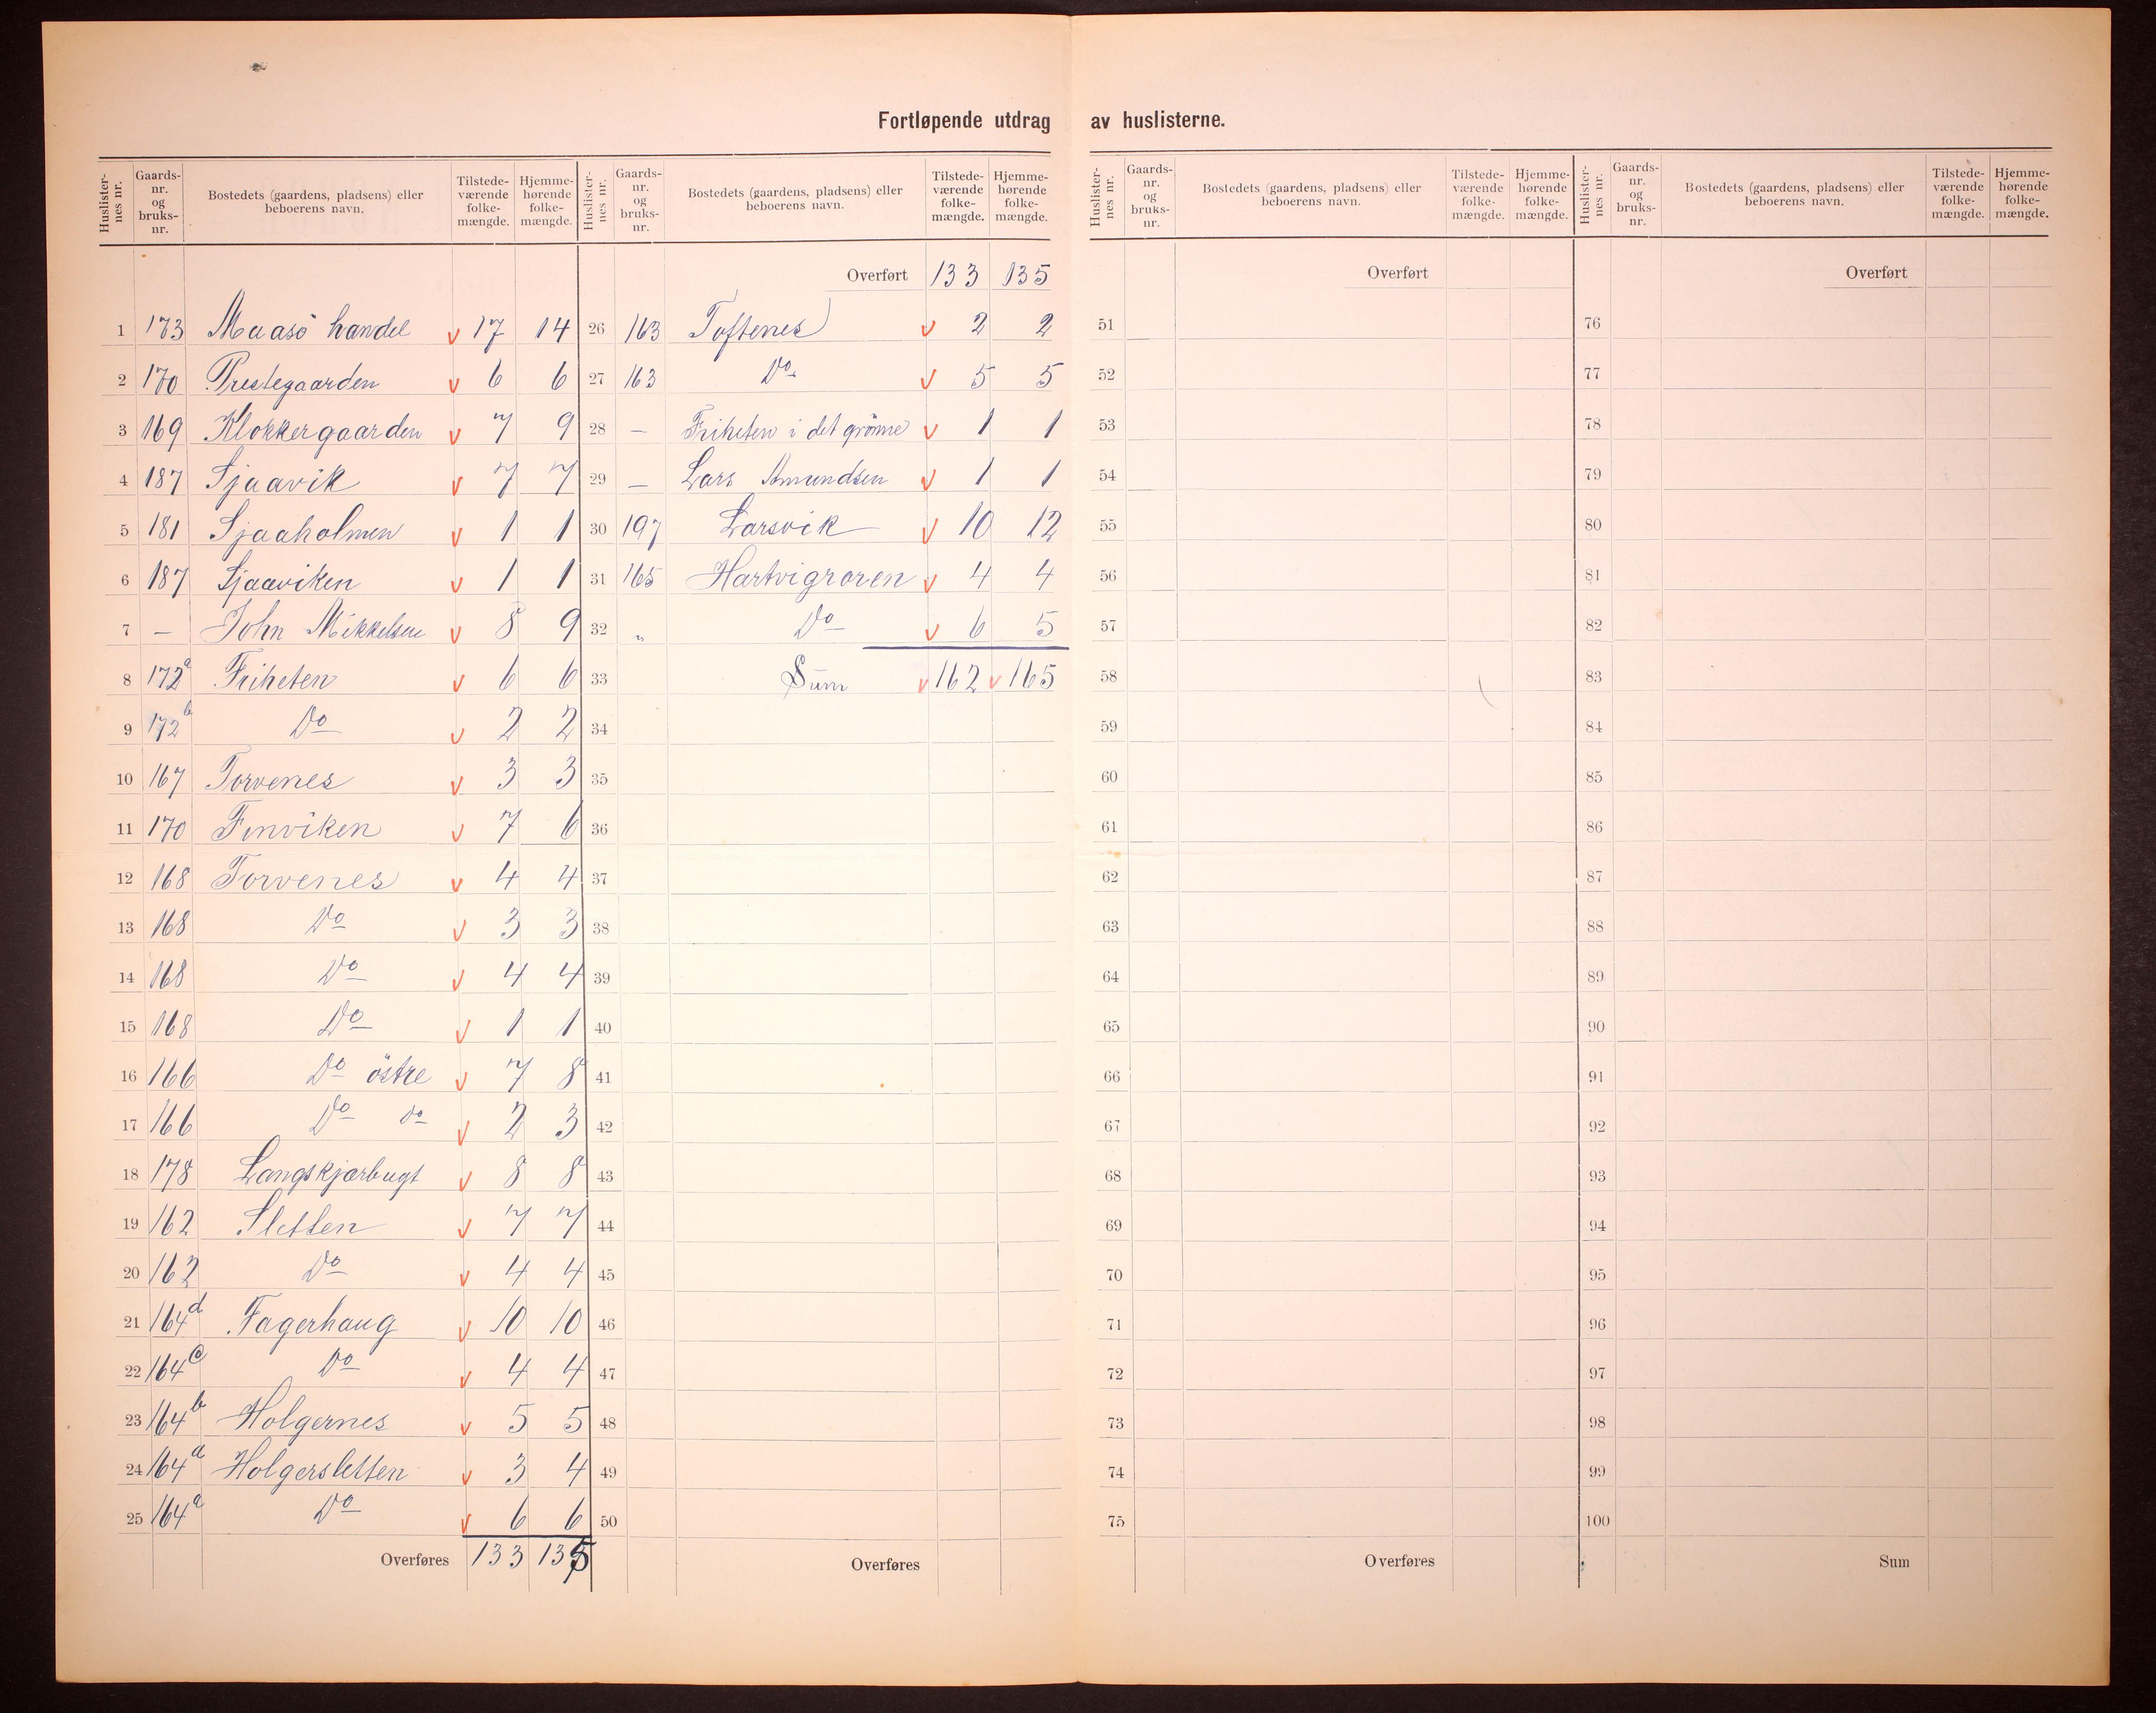 Fortløpende utdrag av huslisterne.
Huslister-nes nr. Gaards-nr. og bruks-nr. Bostedets (gaardens, pladsens) eller beboerens navn. Tilstede-værende folke-mængde. Hjemme-hørende folke-mængde.
1 173 Maasö handel v 17 14
2 170 Prestegaarden v 6 6
3 169 Klokkergaarden v 7 9
4 187 Sjaavik v 7 7
5 181 Sjaaholmen v 1 1
6 187 Sjaaviken v 1 1
7 — John Mikkelsen v 8 9
8 172a Friheten v 6 6
9 172b Do v 2 2
10 167 Torvenes v 3 3
11 170 Finviken v 7 6
12 168 Torvenes v 4 4
13 168 Do v 3 3
14 168 Do v 4 4
15 168 Do v 1 1
16 166 Do östre v 7 8
17 166 Do do v 2 3
18 178 Langskjærbugt v 8 8
19 162 Sletten v 7 7
20 162 Do v 4 4
21 164d Fagerhaug v 10 10
22 164c Do v 4 4
23 164b Holgernes v 5 5
24 164a Holgersletten v 3 4
25 164a Do v 6 6
Overføres 133 135
Huslister-nes nr. Gaards-nr. og bruks-nr. Bostedets (gaardens, pladsens) eller beboerens navn. Tilstede-værende folke-mængde. Hjemme-hørende folke-mængde.
Overført 133 135
26 163 Toftenes v 2 2
27 163 Do v 5 5
28 — Friheten i det grönne v 1 1
29 — Lars Amundsen v 1 1
30 197 Larsvik v 10 12
31 165 Hartvigroren v 4 4
32 " Do v 6 5
33 Sum v 162 v 165
34
35
36
37
38
39
40
41
42
43
44
45
46
47
48
49
50
Overføres
Huslister-nes nr. Gaards-nr. og bruks-nr. Bostedets (gaardens, pladsens) eller beboerens navn. Tilstede-værende folke-mængde. Hjemme-hørende folke-mængde.
Overført
51
52
53
54
55
56
57
58
59
60
61
62
63
64
65
66
67
68
69
70
71
72
73
74
75
Overføres
Huslister-nes nr. Gaards-nr. og bruks-nr. Bostedets (gaardens, pladsens) eller beboerens navn. Tilstede-værende folke-mængde. Hjemme-hørende folke-mængde.
Overført
76
77
78
79
80
81
82
83
84
85
86
87
88
89
90
91
92
93
94
95
96
97
98
99
100
Sum